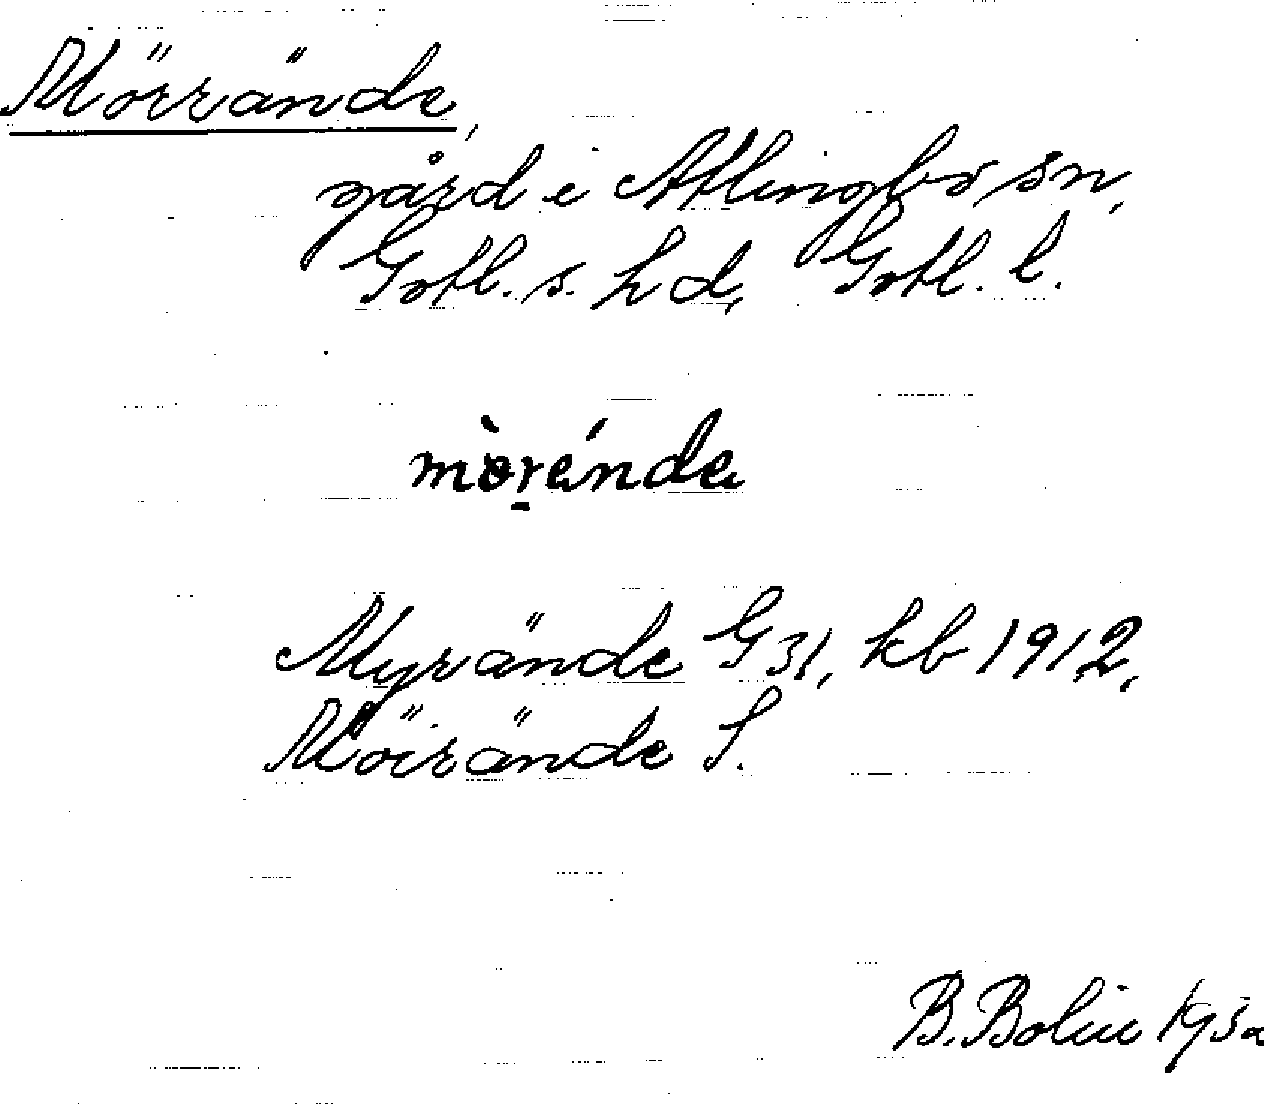 Mörrände,
gård i Atlingbo sn,
Gotl. s. hd, Gotl. l.
mòrénde
Myrände G 31, kb 1912,
Möirände S.
B. Bolin 193